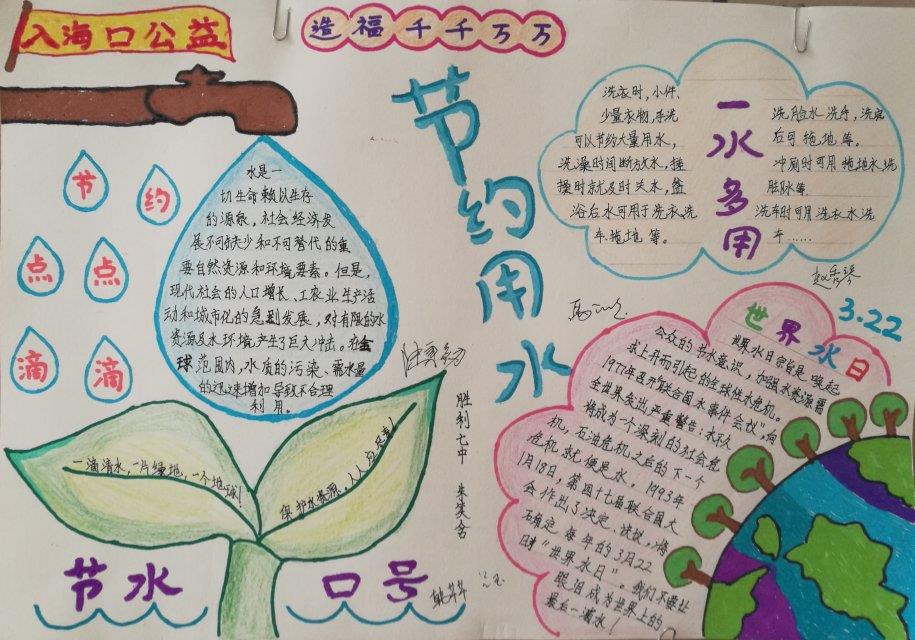 入海口公益
造福千千万万
节约用水
节约
点点
滴滴
水是一
切生命赖以生存
的源泉，社会经济发
展不可缺少和不可替代的重
要自然资源和环境要素。但是，
现代社会的人口增长、工农业生产活
动和城市化的急剧发展，对有限的水
资源及水环境产生了巨大冲击。在全
球范围内，水质的污染、需水量
的迅速增加导致不合理
利用。
一水多用
洗衣时，小件、
少量衣物，手洗
可以节约大量用水，
洗澡时间断放水，搓
澡时就及时关水，盆
浴后水可用于洗衣、洗
车、拖地等。
洗脸水洗手、洗完
后可拖地等。
冲厕时可用拖地水、洗
脏水等
洗车时可用洗衣水洗
车……
3.22
世界水日
世界水日宗旨是唤起
公众的节水意识，加强水资源
求上升而引起的全球性水危机。
1977年召开"联合国水事件会议"，向
全世界发出严重警告：水不久
将成为一个深刻的社会危
机，石油危机之后的下一个
危机就便是水。1993年
1月18日，第四十七届联合国大
会作出了决定，决议，将
确定每年的3月22
日时"世界水日"。我们不要让
眼泪成为世界上的
最后一滴水！
一滴清水，一片绿地，一个地球！
保护水资源，人人应尽责！
胜利七中
节水
口号